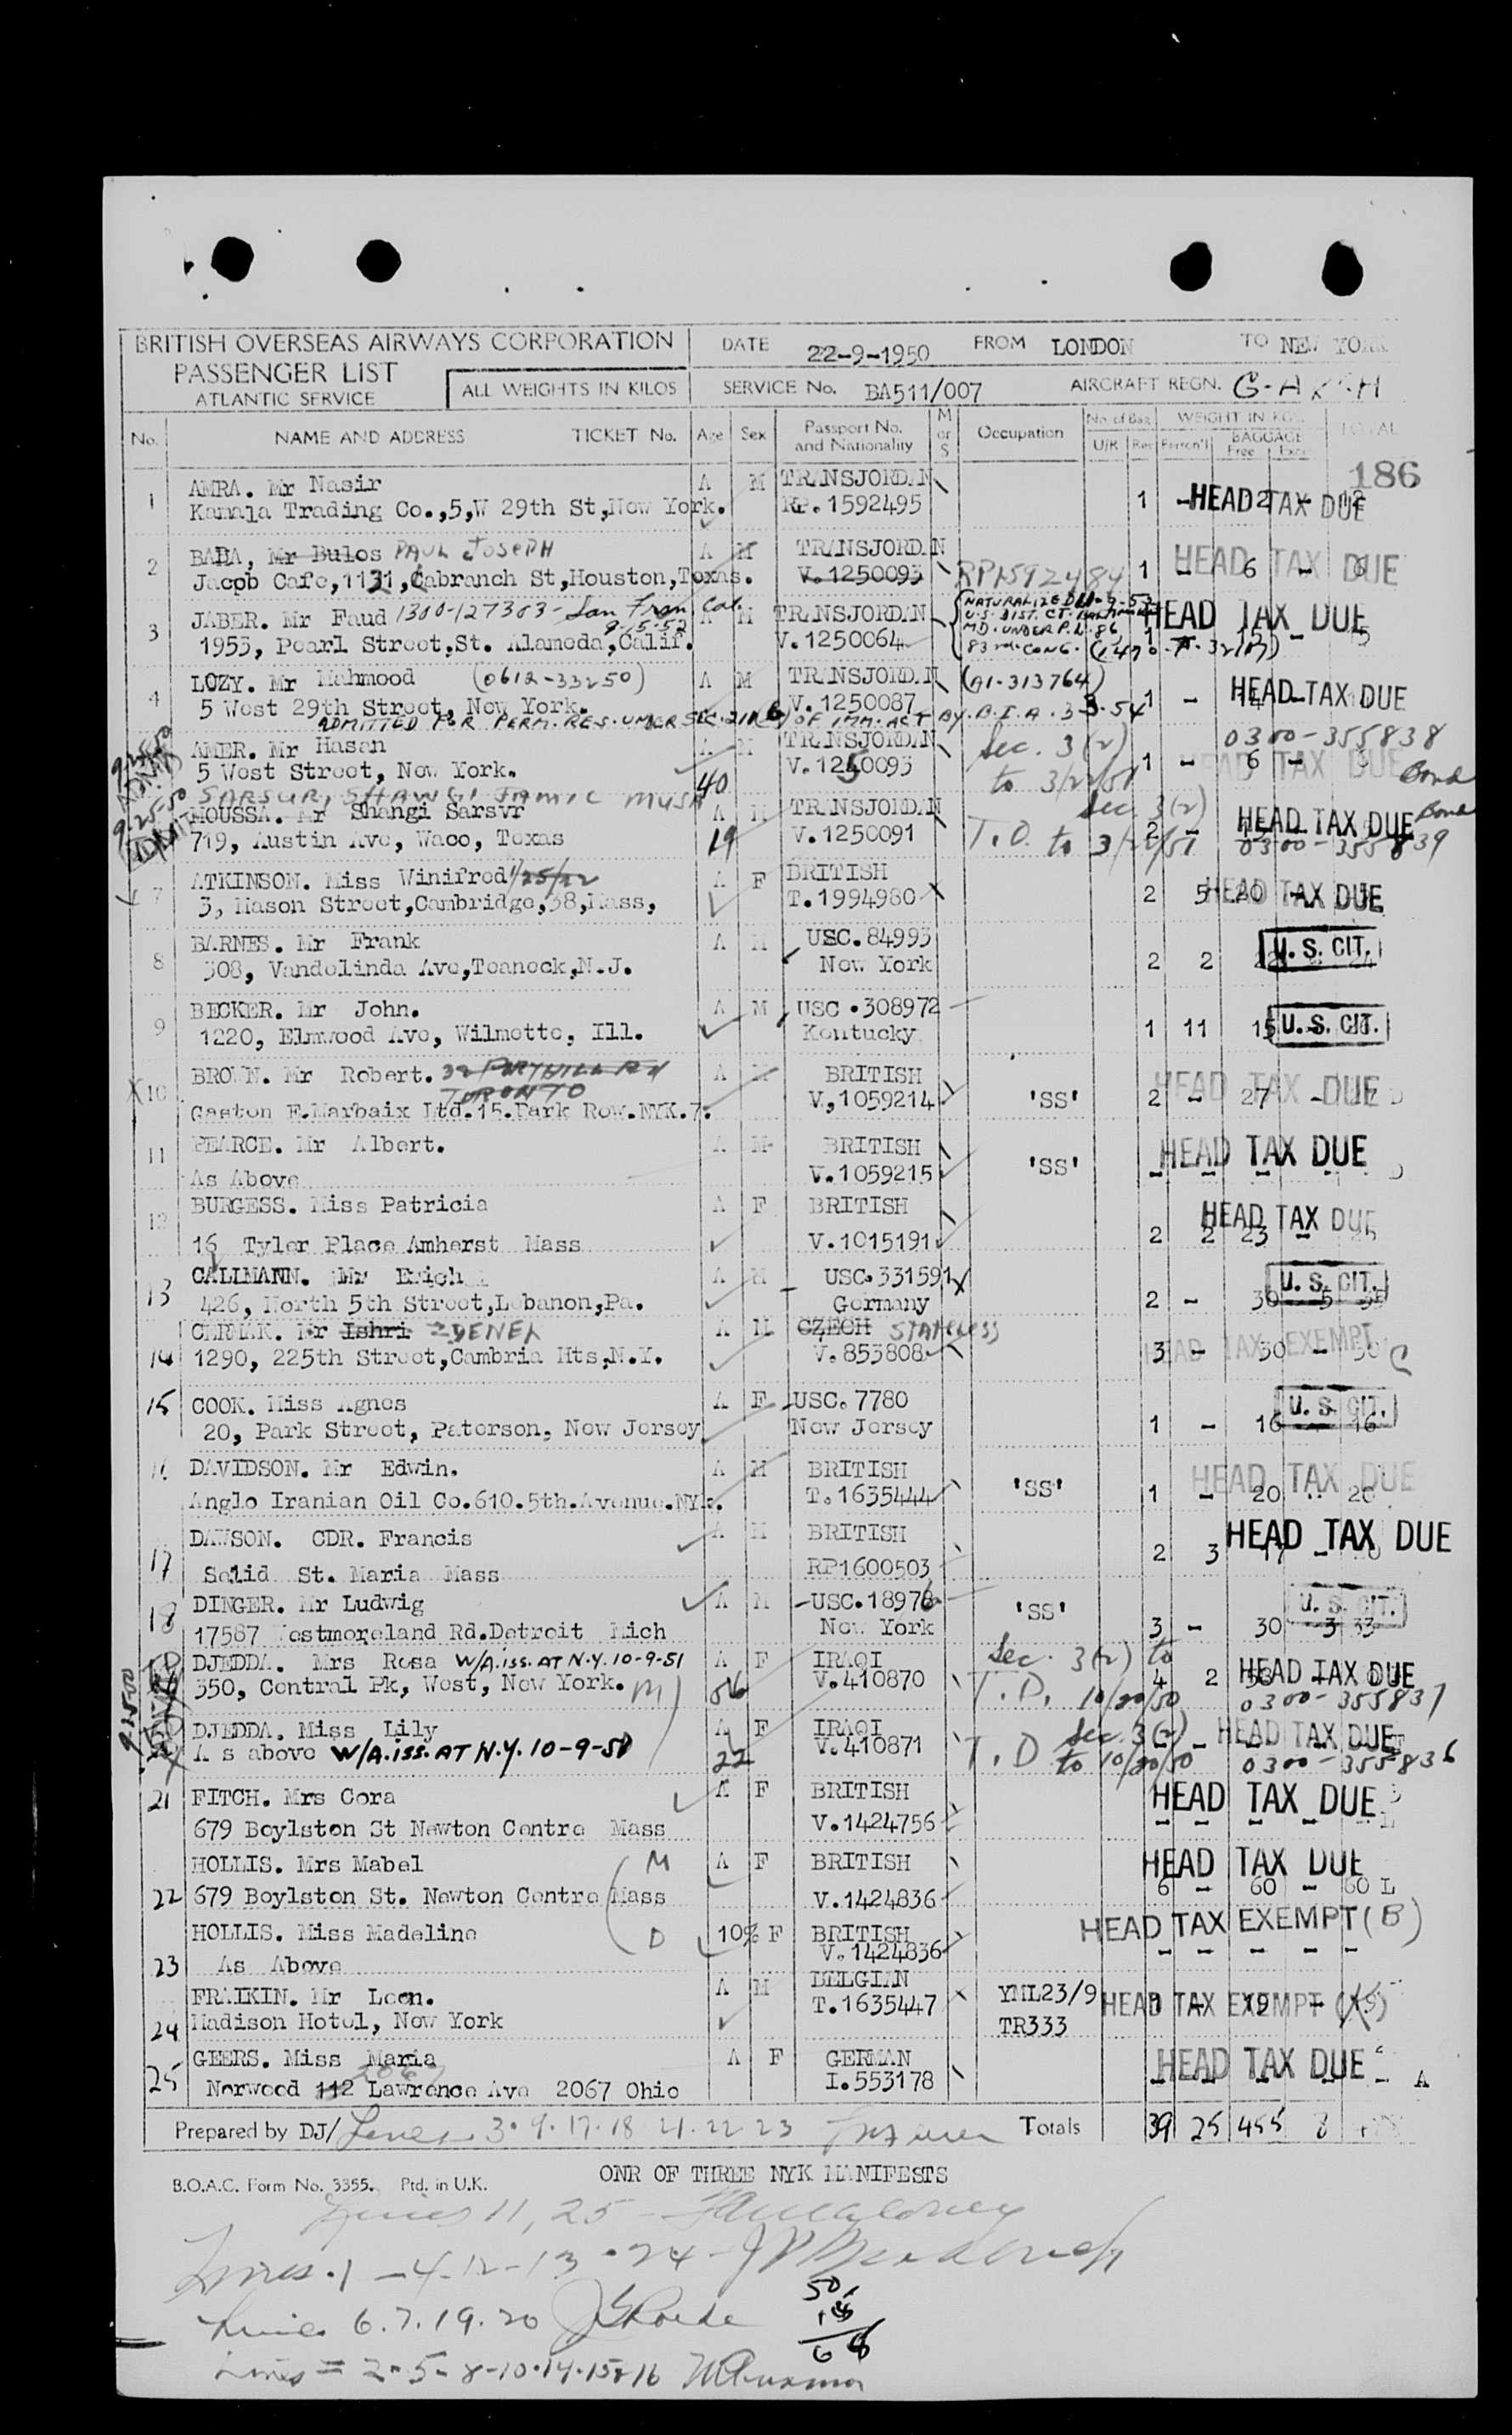 BRITISH OVERSEAS AIRWAYS CORPORATION
PASSENGER LIST
ATLANTIC SERVICE
ALL WEIGHTS IN KILOS
DATE 22-9-1950 FROM LONDON TO NEW YORK
SERVICE No. BA511/007 AIRCRAFT REGN.
No. NAME AND ADDRESS TICKET No. Age Sex Passport No. and Nationality M or S Occupation No. of Bag U/R Reg WEIGHT IN KGS. Person'l BAGGAGE Free Exc. TOTAL
186
1 AMRA. Mr Nasir A M TRANSJORDAN
Kamala Trading Co.,5,W 29th St,New York. RP.1592495 1 - HEAD TAX DUE
2 BABA, Mr Bulos PAUL JOSEPH A M TRANSJORDAN
Jacob Cafe,1131,Cabranch St,Houston,Texas. V.1250093 RP1592484 1 - 6 - 6 HEAD TAX DUE
3 JABER. Mr Faud 1300-127303-San Fran. Cal. 9.15.52 A M TRANSJORDAN NATURALIZED
U.S. DIST. CT.
MD. UNDER P.L. 86
83rd CONG.
1953, Pearl Street,St. Alameda,Calif. V.1250064 HEAD TAX DUE
4 LOZY. Mr Mahmood (0612-33250) A M TRANSJORDAN (A1-313764)
5 West 29th Street, New York. V.1250087 1 - HEAD TAX DUE
ADMITTED FOR PERM. RES. UNDER SEC. OF IMM. ACT BY B.I.A. 3-3-54
AMER. Mr Hasan A M TRANSJORDAN Sec. 3(2) 0300-355838
5 West Street, New York. 40 V.1250093 to 3/22/51 1 - 6 - HEAD TAX DUE Bond
SARSUR, SHAWGI JAMIL MUSA
MOUSSA. Mr Shangi Sarsvr A M TRANSJORDAN Sec. 3(2) Bond
719, Austin Ave, Waco, Texas 19 V.1250091 T.D. to 3/22/51 2 - HEAD TAX DUE 0300-355839
7 ATKINSON. Miss Winifred A F BRITISH
3, Mason Street,Cambridge,38,Mass, T.1994980 2 5 20 HEAD TAX DUE
8 BARNES. Mr Frank A M USC.84993
308, Vandelinda Ave,Teaneck,N.J. New York 2 2 22 24 U. S. CIT.
9 BECKER. Mr John. A M USC.308972
1220, Elmwood Ave, Wilmette, Ill. Kentucky 1 11 15 U. S. CIT.
10 BROWN. Mr Robert. TORONTO A M BRITISH
Gaston E.Marbaix Ltd.15.Park Row.NYK.7. V,1059214 'SS' 2 - 27 - 27 HEAD TAX DUE
11 PEARCE. Mr Albert. A M BRITISH
As Above V.1059215 'SS' HEAD TAX DUE
12 BURGESS. Miss Patricia A F BRITISH
16 Tyler Place Amherst Mass V.1015191 2 2 23 - 25 HEAD TAX DUE
13 CALLMANN. Mr Erich A M USC.331591
426, North 5th Street,Lebanon,Pa. Germany 2 - 30 5 35 U. S. CIT.
CERMAK. Mr Ishri ZDENEK A M CZECH STATELESS
14 1290, 225th Street,Cambria Hts,N.Y. V.853808 3 - 30 - 30 HEAD TAX EXEMPT C
15 COOK. Miss Agnes A F USC.7780
20, Park Street, Paterson, New Jersey New Jersey 1 - 16 16 U. S. CIT.
16 DAVIDSON. Mr Edwin. A M BRITISH
Anglo Iranian Oil Co.610.5th.Avenue.NYk. T.1635444 'SS' 1 - 20 20 HEAD TAX DUE
DAWSON. CDR. Francis A M BRITISH
17 Solid St. Maria Mass RP1600503 2 3 17 - HEAD TAX DUE
18 DINGER. Mr Ludwig A M USC.18976
17587 Westmoreland Rd.Detroit Mich New York 'SS' 3 - 30 3 33 U. S. CIT.
DJEDDA. Mrs Rosa W/A. iss. AT N.Y. 10-9-51 A F IRAQI Sec. 3(2) to
350, Central Pk, West, New York. M 56 V.410870 T.D. 10/20/50 4 2 HEAD TAX DUE 0300-355837
DJEDDA. Miss Lily A F IRAQI Sec. 3(2) HEAD TAX DUE
A s above W/A. iss. AT N.Y. 10-9-50 22 V.410871 T.D to 10/20/50 0300-355836
21 FITCH. Mrs Cora A F BRITISH
679 Boylston St Newton Centre Mass V.1424756 HEAD TAX DUE
HOLLIS. Mrs Mabel M A F BRITISH
22 679 Boylston St. Newton Centre Mass V.1424836 6 - 60 - 60 L HEAD TAX DUE
HOLLIS. Miss Madeline D 10% F BRITISH
23 As Above V.1424836 HEAD TAX EXEMPT (B)
FRAIKIN. Mr Leon. A M BELGIAN YML23/9
24 Madison Hotel, New York T.1635447 TR333 HEAD TAX EXEMPT
25 GEERS. Miss Maria A F GERMAN
Norwood 112 Lawrence Ave 2067 Ohio I.553178 HEAD TAX DUE A
Prepared by DJ/ 3.9.17.18 21.22.23 Totals 39 25 455 8
B.O.A.C. Form No. 3355. Ptd. in U.K. ONR OF THREE NYK MANIFESTS
Lines 11, 25
Lines.1-4-12-13-24
Lines 6.7.19.20
Lines = 2-5-8-10-14-15&16